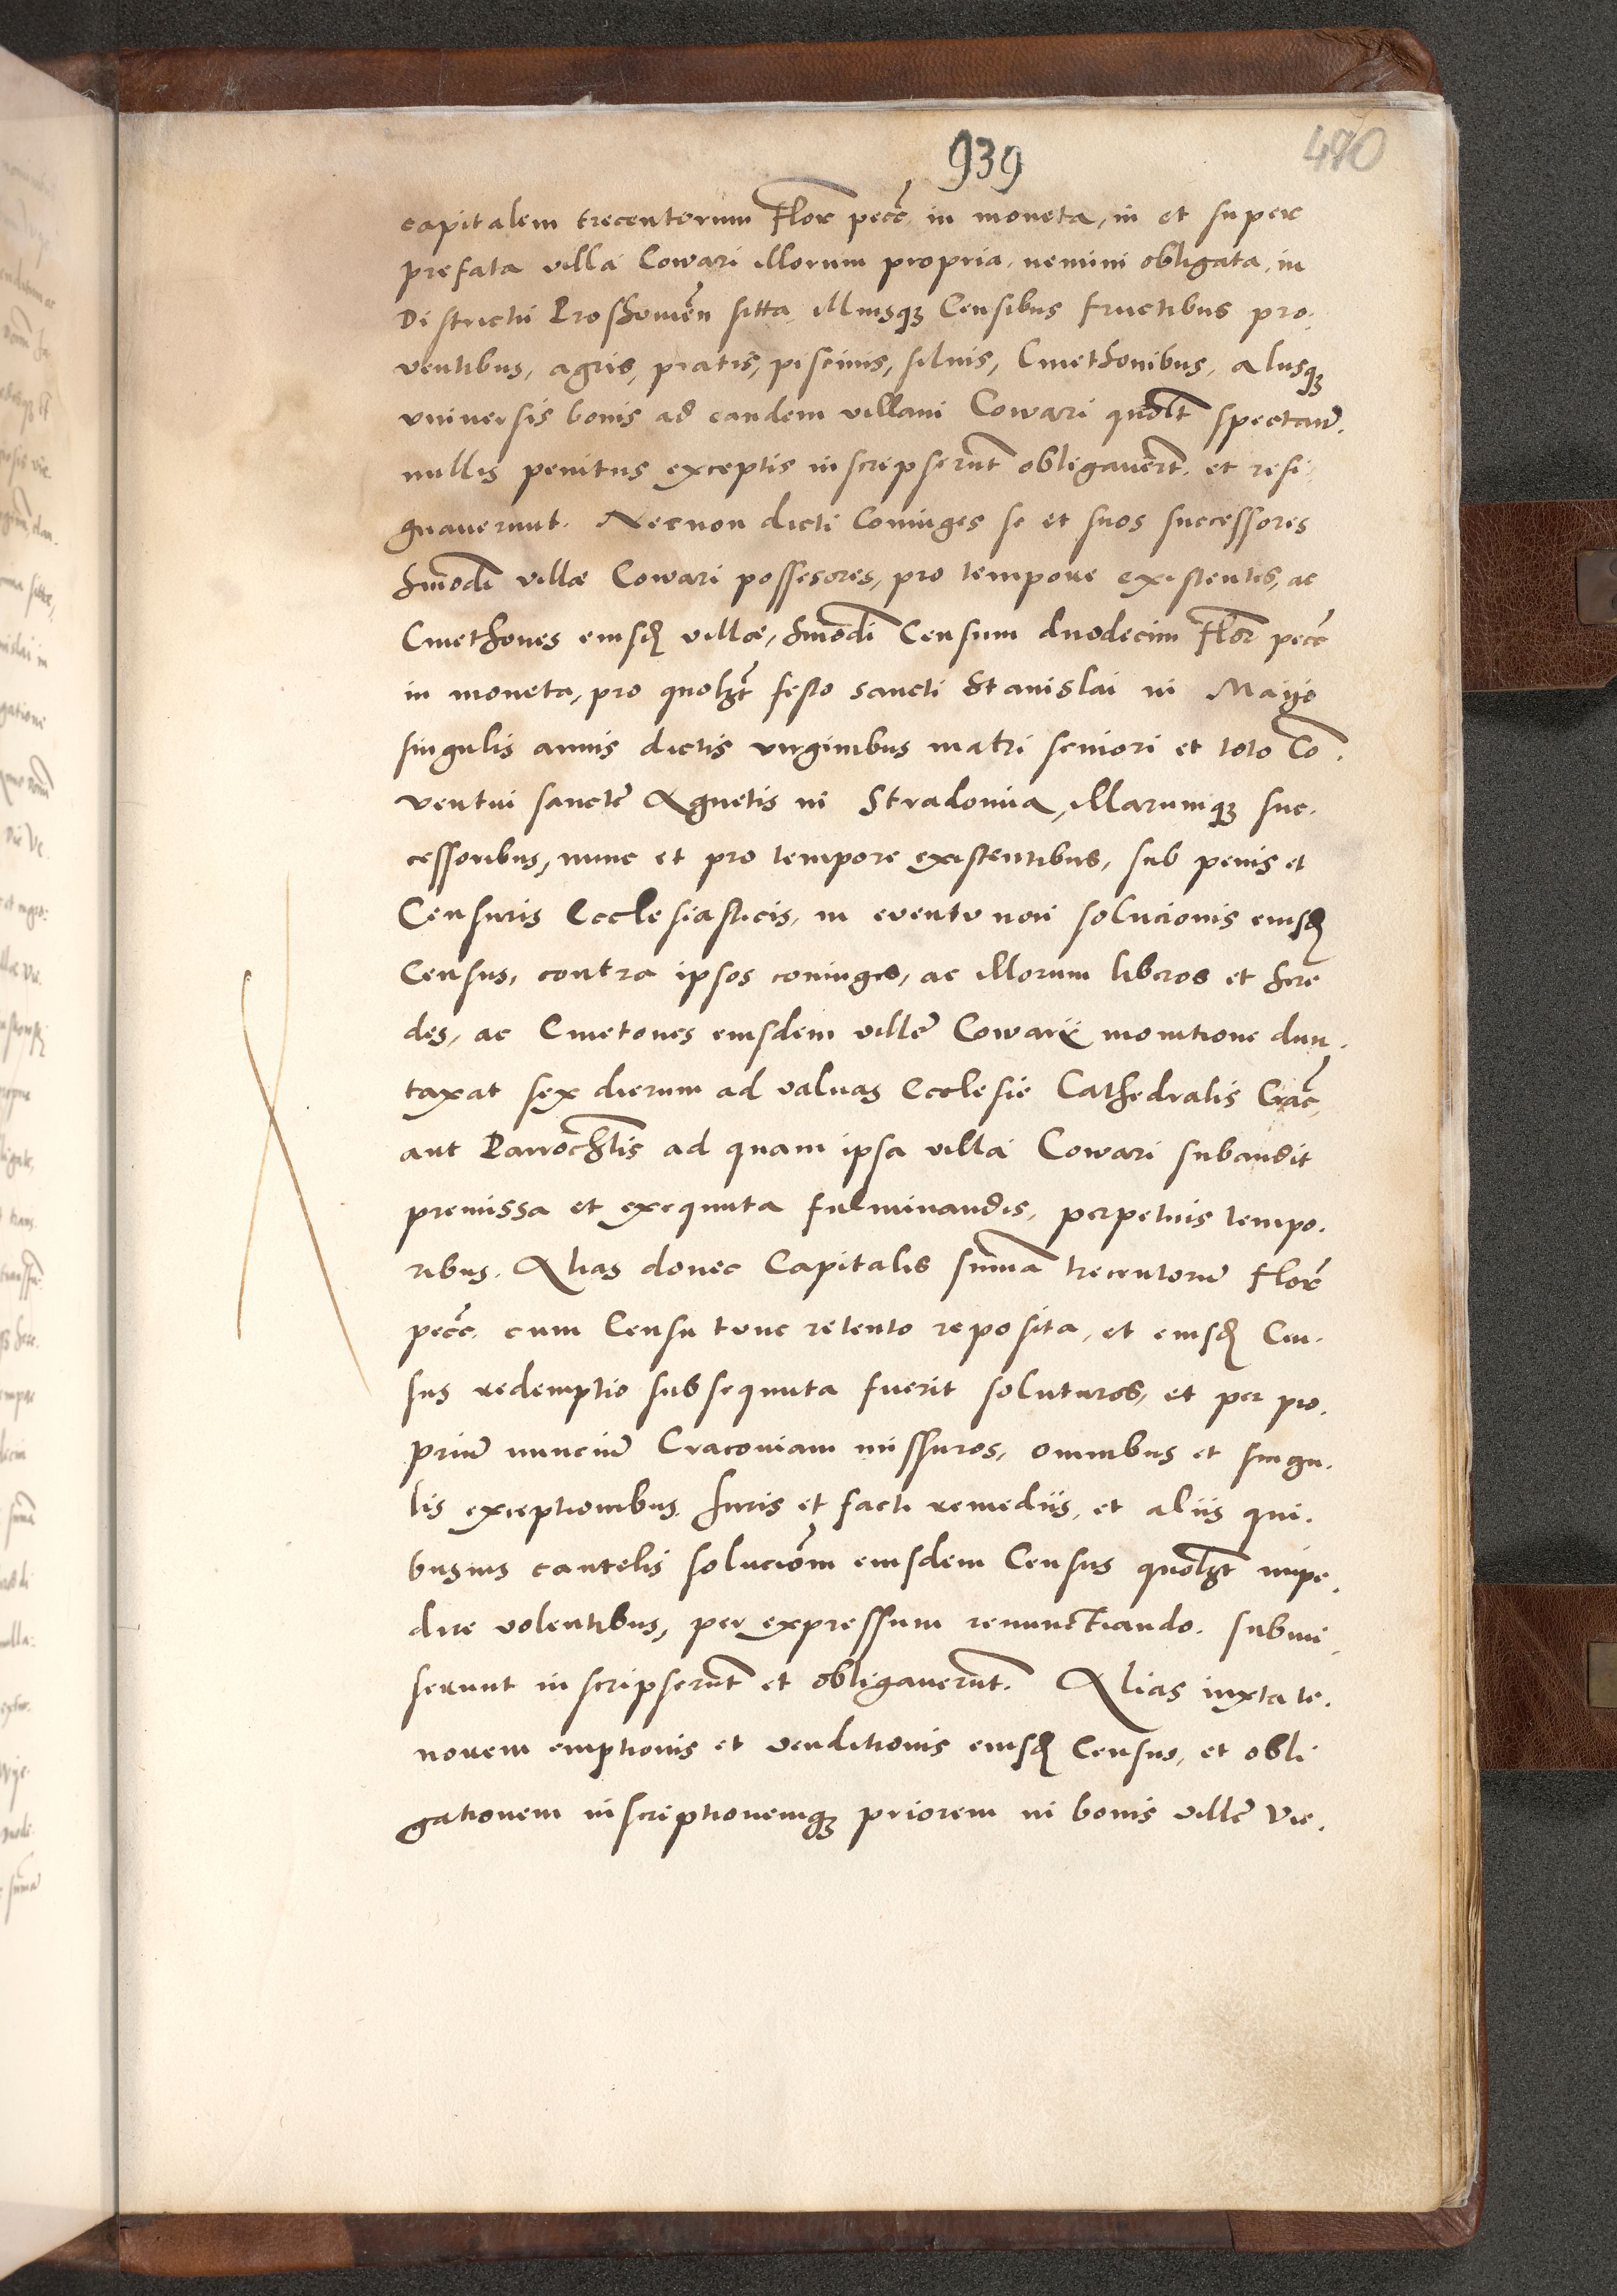 939
480
capitalem trecentorum Flor pecc in moneta, in et super
prefata villa Cowari illorum propria, nemini obligata, in
Districtu Proshouien sitta, illiusq3 Censibus fructibus pro.
ventibus, agris, pratis, piscinis, siluis, Cmethonibus, aliisq3
vniuersis bonis ad eandem villam Cowari quolt spectan.
nullis penitus exceptis inscripserunt obligauert. et resi
gnauerunt. Necnon dicti Coniuges se et suos successores
hmodi villæ Cowari possesores, pro tempore existentes, ac
Cmethones eiusd villæ, hmodi Censum duodecim Flor pecc
in moneta, pro quolzt festo sancti Stanislai in Mayo
singulis annis dictis virginibus matri seniori et toto Co.
ventui sancte Agnetis in Stradomia, illarumq3 suc.
cessoribus, nunc et pro tempore existentibus, sub penis et
Censuris Ecclesiasticis, in eventu non solucionis eiusd
Census, contra ipsos coniuges, ac illorum liberos et here
des, ac Cmetones eiusdem ville Cowari monitione dun.
taxat sex dierum ad valuas Ecclesie Cathedralis Crac
aut Parrochlis ad quam ipsa villa Cowari subaudit
premissa et exequuta fulminandis, perpetuis tempo.
ribus. Alias donec Capitalis summa trecentoru Flor
pecc. cum Censu tunc retento reposita, et eiusd Cen.
sus redemptio subsequuta fuerit soluturos, et per pro.
priu nunciu Cracouiam missuros, omnibus et singu.
lis exceptionibus Iuris et facti remediis, et aliis qui.
busuis cautelis soluciom eiusdem Census quolzt impe.
dire volentibus, per expressum renunctiando. submi
serunt inscripserunt et obligauerunt. Alias iuxta te.
norem emptionis et venditionis eiusd Census, et obli
gationem inscriptionemq3 priorem in bonis ville Vie.